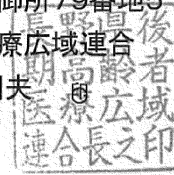 御所79番地5
療広域連合
夫 印
長野県後
期高齢者
医療広域
連合長之印